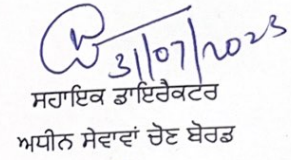 31/07/2023
ਸਹਾਇਕ ਡਾਇਰੈਕਟਰ
ਅਧੀਨ ਸੇਵਾਵਾਂ ਚੋਣ ਬੋਰਡ